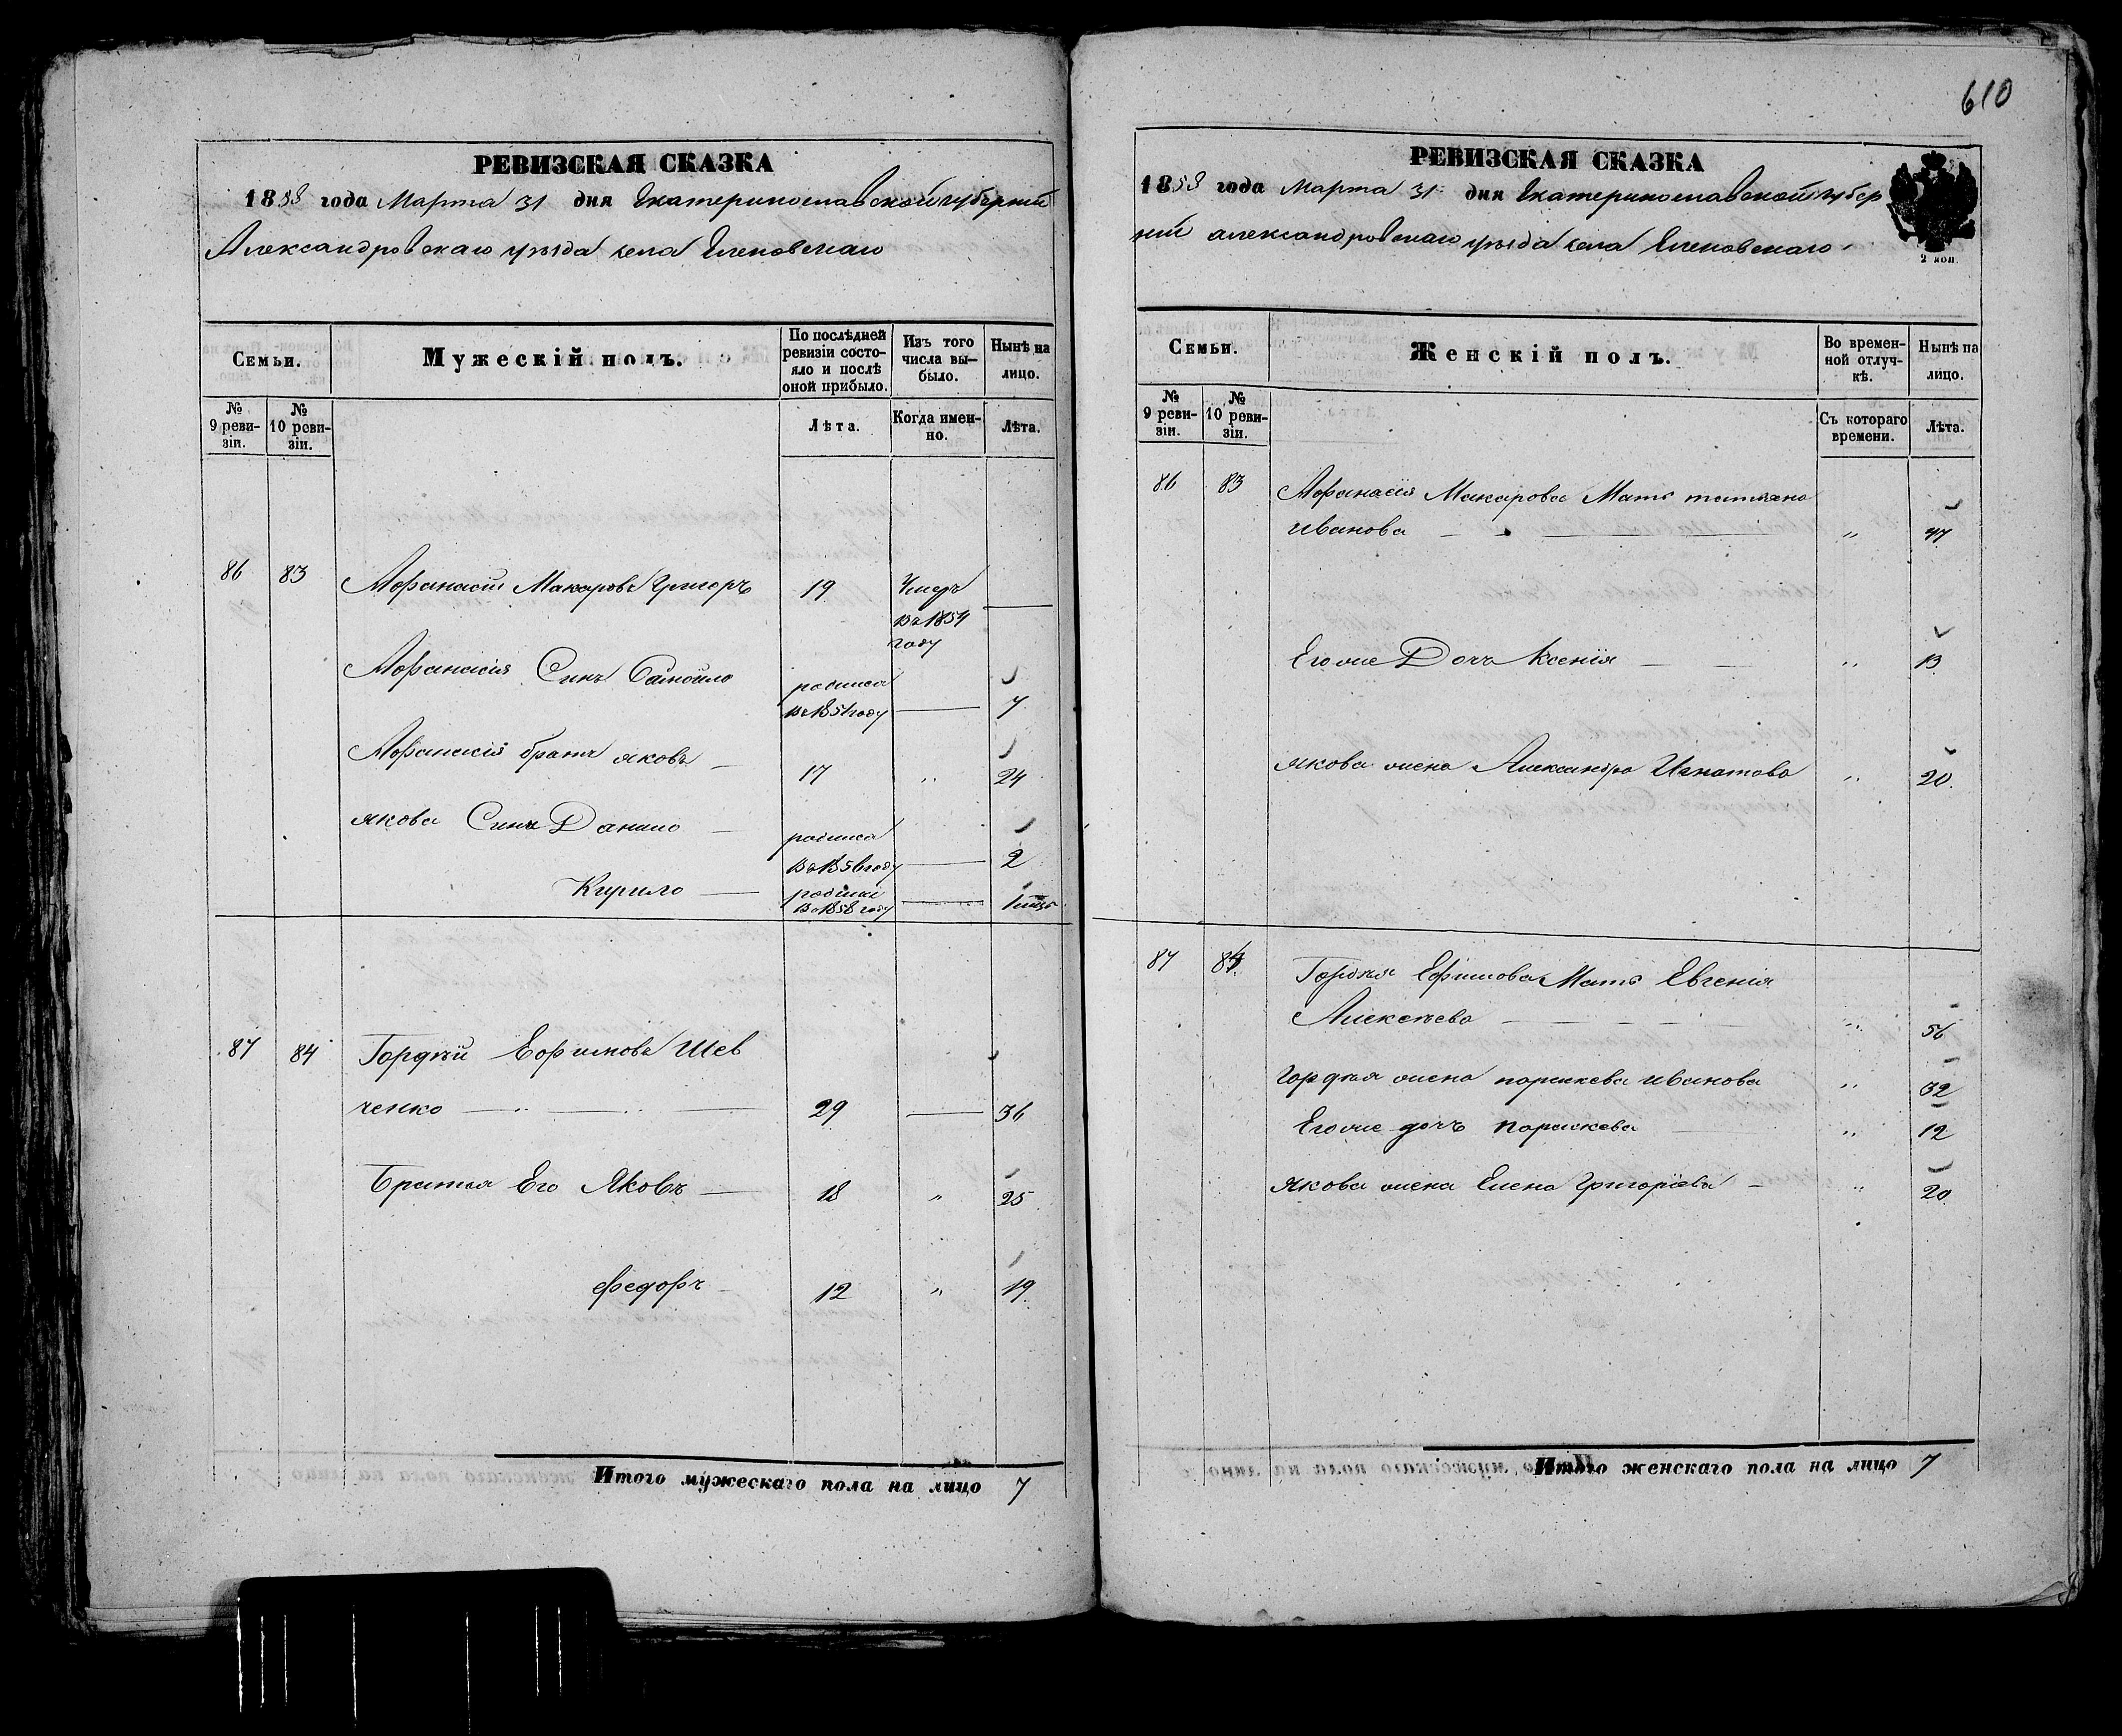 610
РЕВИЗСКАЯ СКАЗКА
1858 года Марта 31 дня Екатеринославской губерний
Александровскаго уѣзда села Еленовскаго
Семьи.
Мужескій полъ.
По послѣдней
ревизіи состо-
яло и послѣ
оной прибыло.
Изъ того
числа вы-
было.
Нынѣ на
лицо.
№
9 реви-
зіи.
№
10 реви-
зіи.
Лѣта.
Когда имен-
но.
Лѣта.
86 83 Афанасій Макаровъ Григоръ 19 Умеръ
въ 1854
году
Афанасія Синъ Самойло родился
въ 1851 году 7
Афанасія братъ яковъ 17 „ 24
якова Синъ Данило родился
въ 1856 году 2
Кирило родился
въ 1858 году 1 мѣсъ
87 84 Гордѣй Ефимовъ Шев
ченко 29 36
Братья Его Яковъ 18 „ 25
федоръ 12 „ 19
Итого мужескаго пола на лицо 7
РЕВИЗСКАЯ СКАЗКА
1858 года Марта 31 дня Екатеринославской губер
ній александровскаго уѣзда села Еленовскаго
2 коп.
Семьи.
Женскій полъ.
Во времен-
ной отлуч-
кѣ.
Нынѣ на
лицо.
№
9 реви-
зіи.
№
10 реви-
зіи.
Съ котораго
времени.
Лѣта.
86 83 Афанасія Макарова Мать татияна
иванова „ 47
Егоже Дочь Ксенія „ 13
якова жена Александра Игнатова „ 20
87 84 Гордѣя Ефимова Мать Евгенія
Алексѣева „ 56
гордѣя жена параскева иванова „ 32
Егоже дочъ параскева „ 12
якова жена Елена Григоріева „ 20
Итого женскаго пола на лицо 7